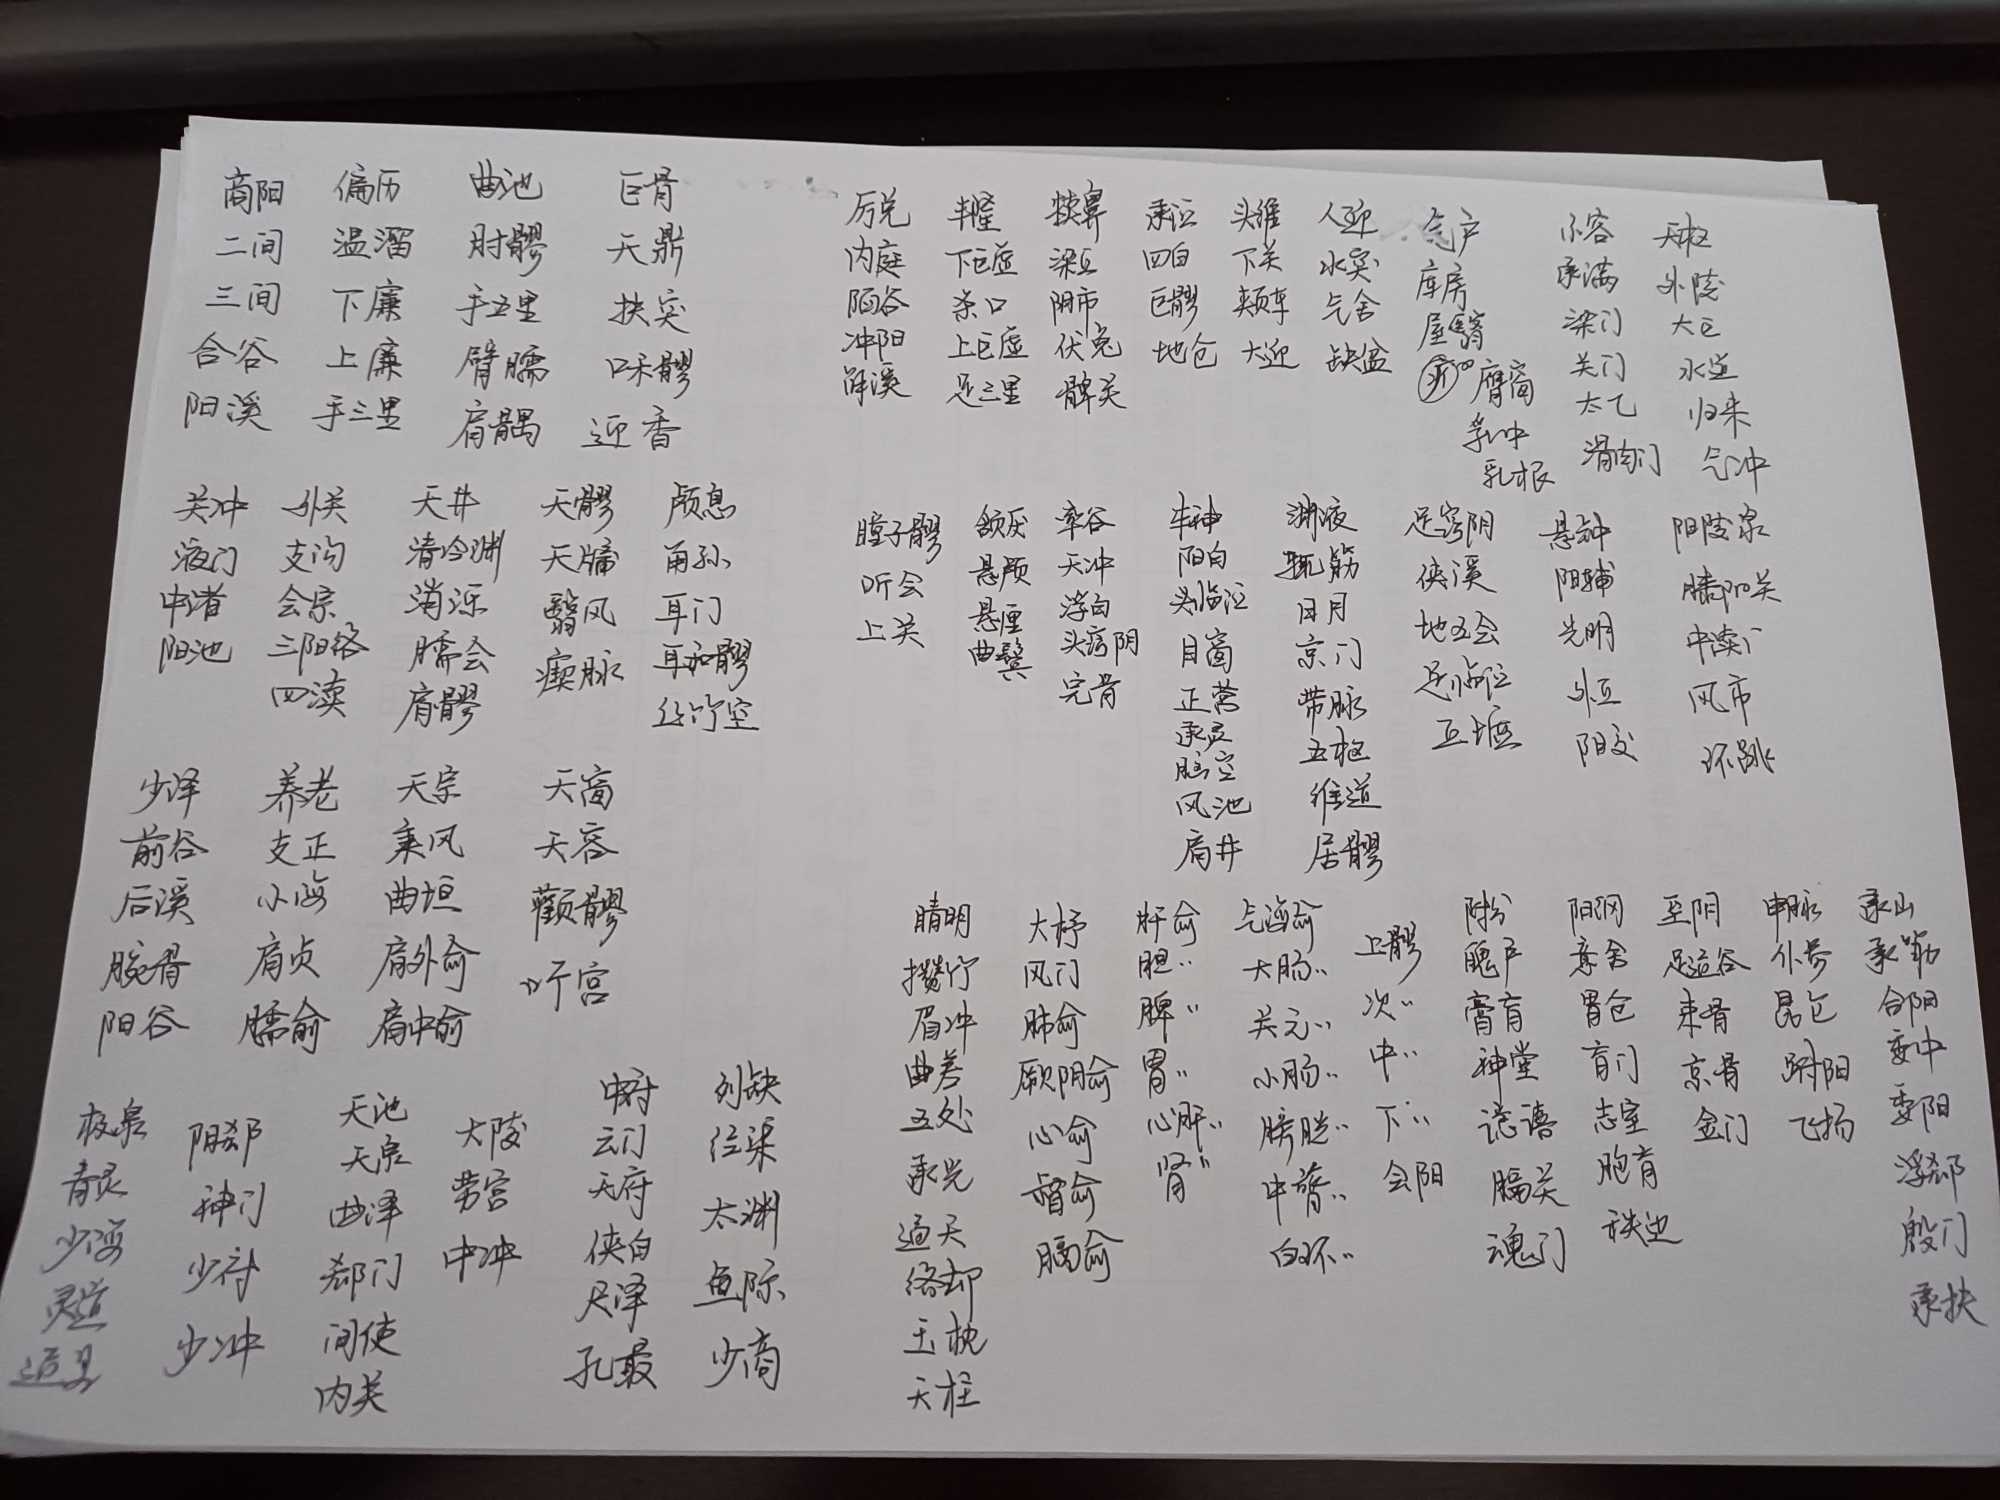 商阳 偏历 曲池 巨骨
二间 温溜 肘髎 天鼎
三间 下廉 手五里 扶突
合谷 上廉 臂臑 口禾髎
阳溪 手三里 肩髃 迎香
厉兑 丰隆 犊鼻 承泣 头维 人迎 气户 不容 天枢
内庭 下巨虚 梁丘 四白 下关 水突 库房 承满 外陵
陷谷 条口 阴市 巨髎 颊车 气舍 屋翳 梁门 大巨
冲阳 上巨虚 伏兔 地仓 大迎 缺盆 膺窗 关门 水道
解溪 足三里 髀关 乳中 太乙 归来
乳根 滑肉门 气冲
关冲 外关 天井 天髎 颅息
液门 支沟 清冷渊 天牖 角孙
中渚 会宗 消泺 翳风 耳门
阳池 三阳络 臑会 瘈脉 耳和髎
四渎 肩髎 丝竹空
瞳子髎 颔厌 率谷 本神 渊液 足窍阴 悬钟 阳陵泉
听会 悬颅 天冲 阳白 辄筋 侠溪 阳辅 膝阳关
上关 悬厘 浮白 头临泣 日月 地五会 光明 中渎
曲鬓 头窍阴 目窗 京门 足临泣 外丘 风市
完骨 正营 带脉 丘墟 阳交 环跳
承灵 五枢
脑空 维道
风池 居髎
肩井
少泽 养老 天宗 天窗
前谷 支正 秉风 天容
后溪 小海 曲垣 颧髎
腕骨 肩贞 肩外俞 听宫
阳谷 臑俞 肩中俞
睛明 大杼 肝俞 气海俞 上髎 附分 阳冈 至阴 申脉 承山
攒竹 风门 胆〃 大肠〃 次〃 魄户 意舍 足通谷 仆参 承筋
眉冲 肺俞 脾〃 关元〃 中〃 膏肓 胃仓 束骨 昆仑 合阳
曲差 厥阴俞 胃〃 小肠〃 下〃 神堂 肓门 京骨 跗阳 委中
五处 心俞 膀胱〃 会阳 譩譆 志室 金门 飞扬 委阳
承光 督俞 肾〃 中膂〃 膈关 胞肓 浮郄
通天 膈俞 白环〃 魂门 秩边 殷门
络却 承扶
玉枕
天柱
极泉 阴郄 天池 大陵 中府 列缺
青灵 神门 天泉 劳宫 云门 经渠
少海 少府 曲泽 中冲 天府 太渊
灵道 少冲 郄门 侠白 鱼际
通里 间使 尺泽 少商
内关 孔最